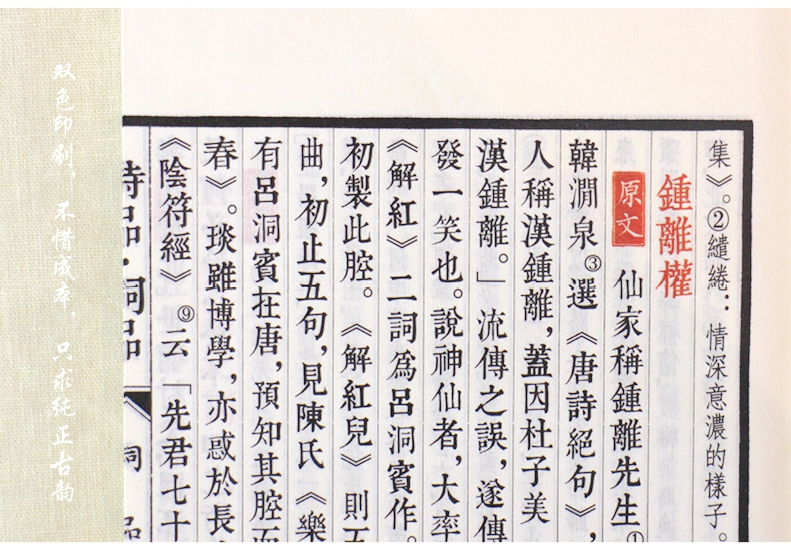 集》。②繾綣：情深意濃的樣子。
鍾離權
原文 仙家稱鍾離先生①
韓澗泉③選《唐詩絕句》，
人稱漢鍾離，蓋因杜子美
漢鍾離。」流傳之誤，遂傳
發一笑也。說神仙者，大率
《解紅》二詞爲呂洞賓作。
初製此腔。《解紅兒》則五
曲，初止五句，見陳氏《樂
有呂洞賓在唐，預知其腔而
春》。琰雖博學，亦惑於長
《陰符經》⑨云「先君七十
詩品·詞品 詞品
双色印刷，不惜成本，只求纯正古韵